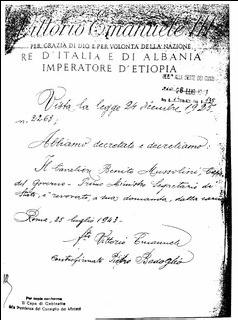 Vittorio Emanuele III
PER GRAZIA DI DIO E PER VOLONTÀ DELLA NAZIONE
RE D'ITALIA E DI ALBANIA
IMPERATORE D'ETIOPIA
Vista la legge 24 dicembre 1925
n. 2263;
Abbiamo decretato e decretiamo:
Il Cavalier Benito Mussolini, Capo
del Governo - Primo Ministro Segretario di
Stato, è revocato, a sua domanda, dalla carica
Roma, 25 luglio 1943.
Fto Vittorio Emanuele
Controfirmato Pietro Badoglio
Per copia conforme
Il Capo di Gabinetto
della Presidenza del Consiglio dei Ministri